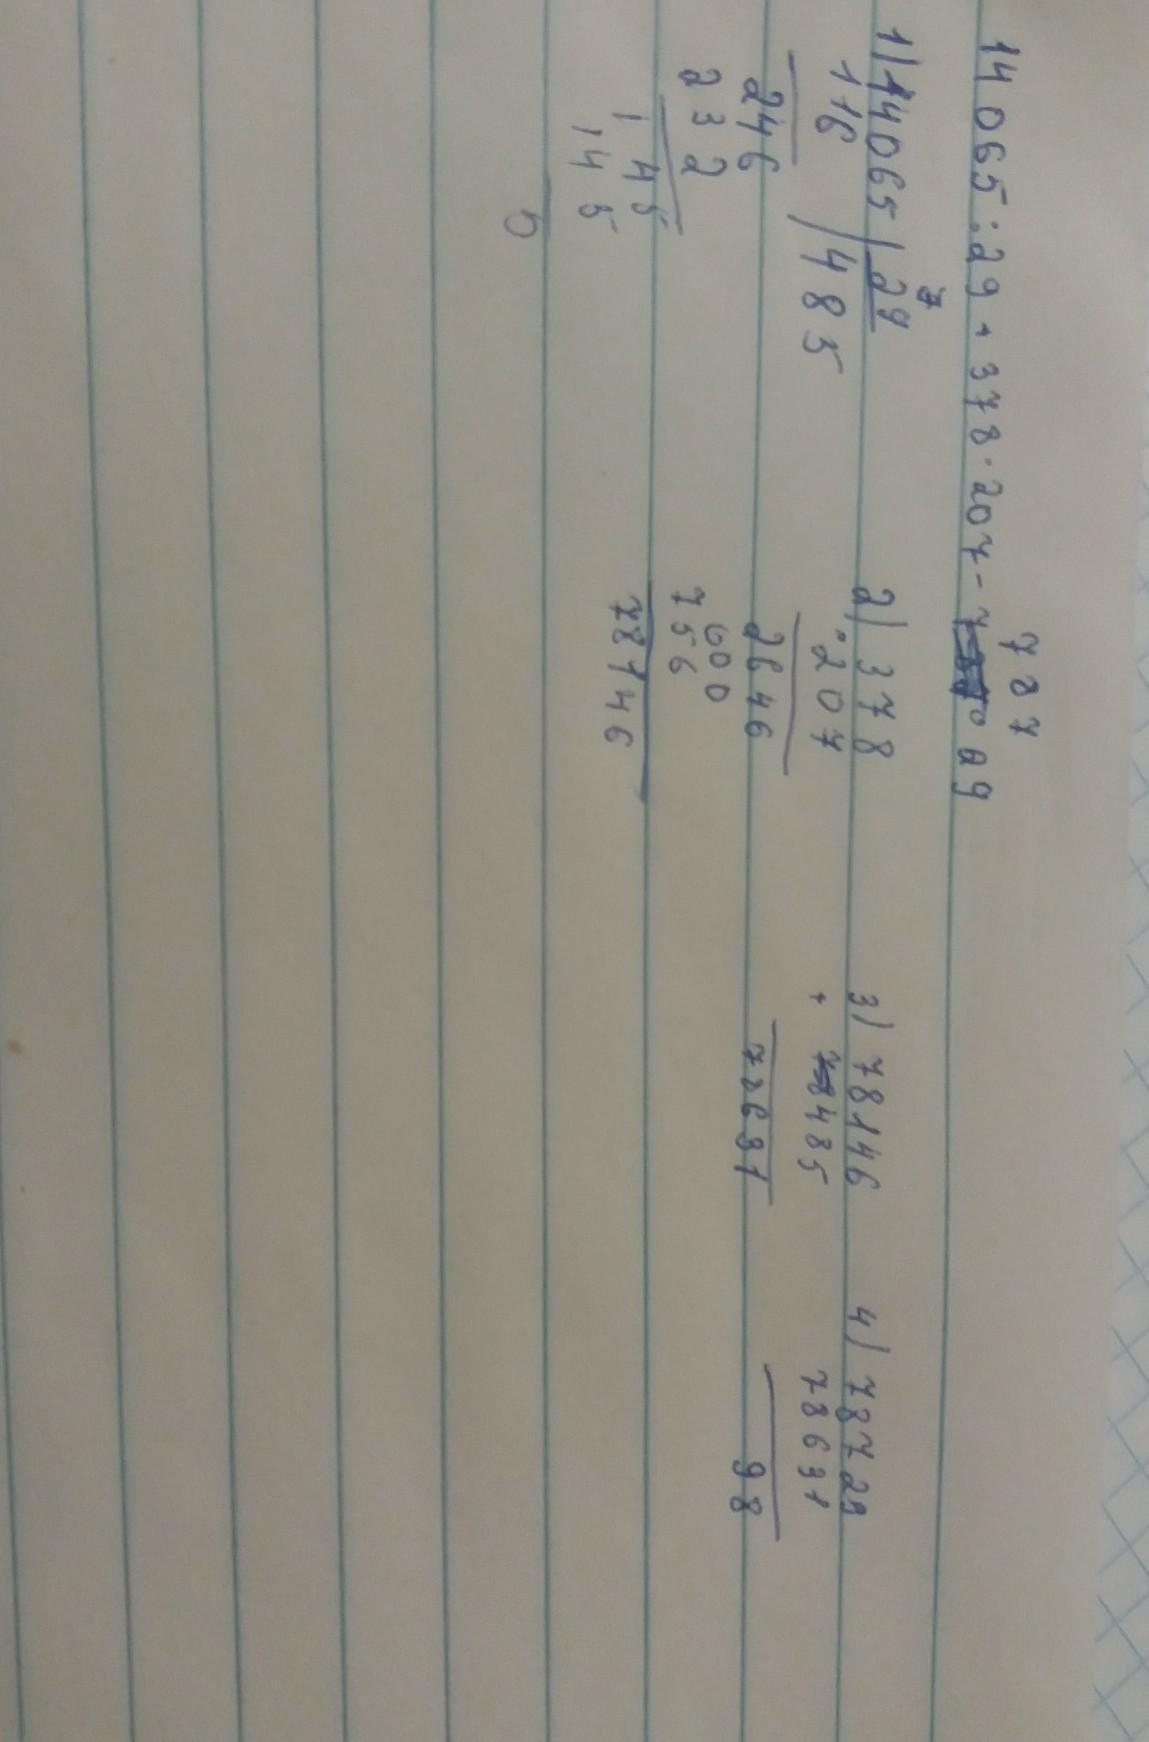 787
14065:29+378·207-7 29
1) 14065 | 29
7
116 | 485
246
232
145
145
0
2) 378
·207
2646
000
756
78146
3) 78146
+ 485
78631
4) 78729
78631
98